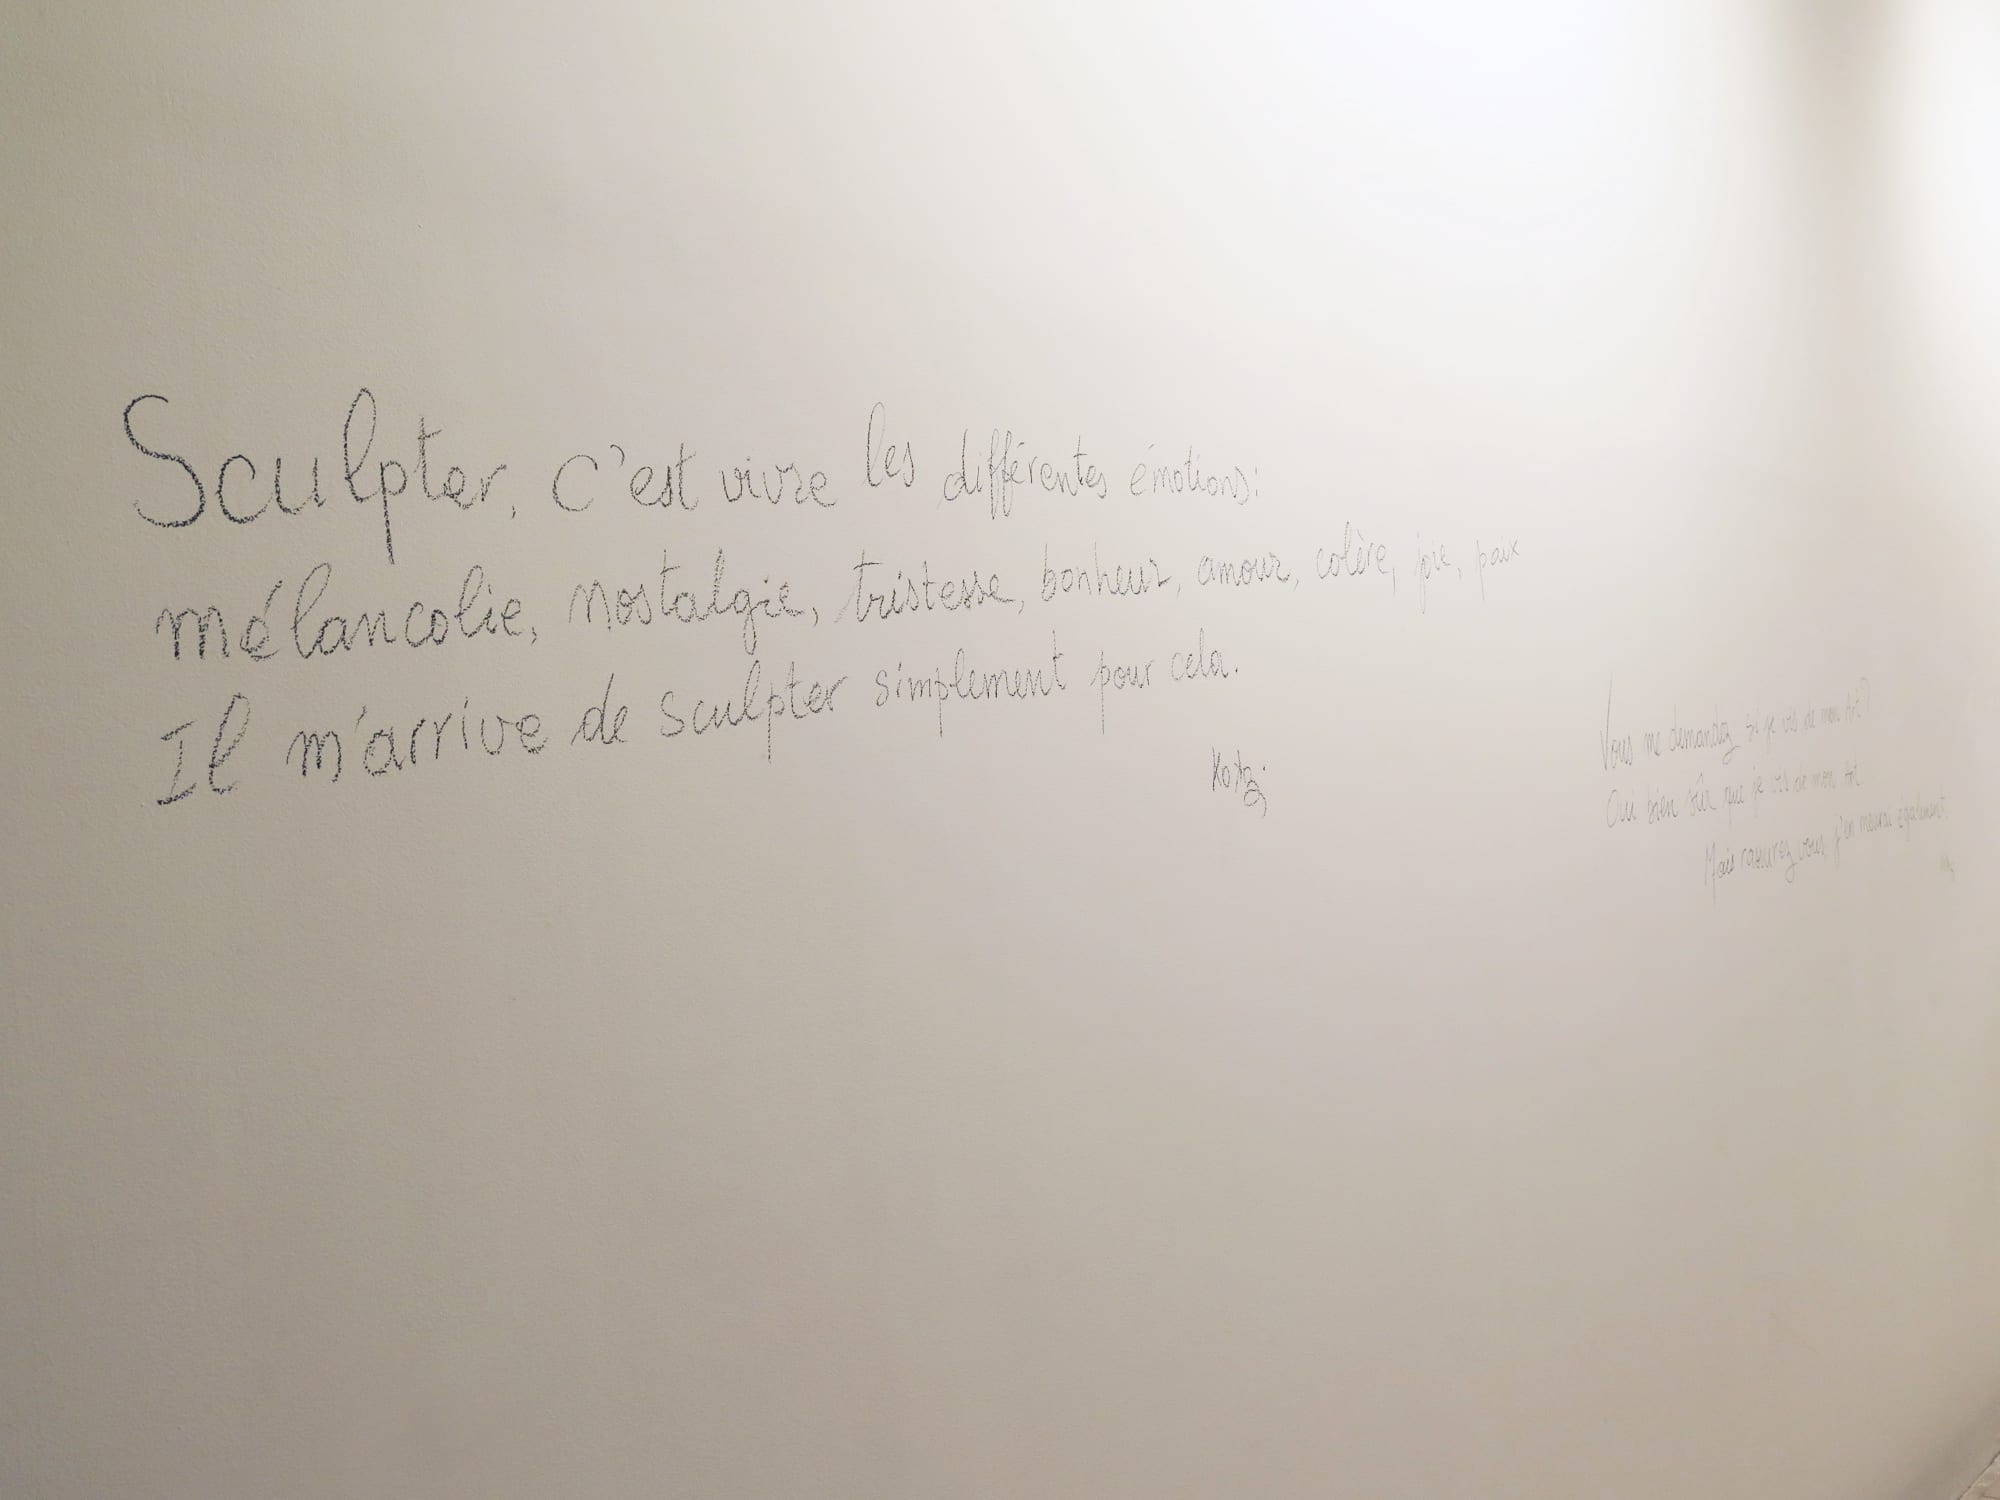 Sculpter, c'est vivre les différentes émotions:
mélancolie, nostalgie, tristesse, bonheur, amour, colère, joie, paix
Il m'arrive de sculpter simplement pour cela.
Vous me demandez si je vis de mon Art?
Oui bien sûr que je vis de mon Art
Mais rassurez vous, j'en mourai également.